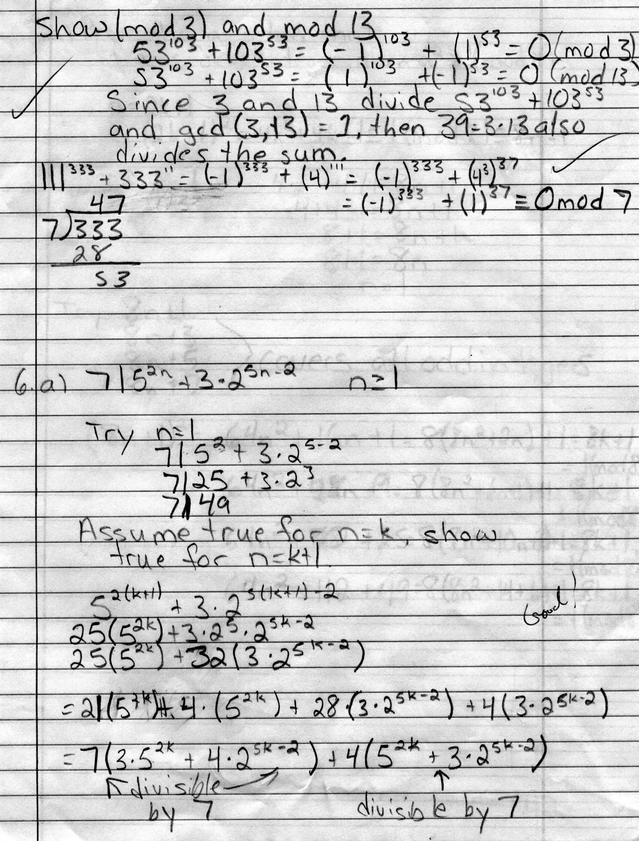 Show (mod 3) and mod 13
53^103 + 103^53 = (-1)^103 + (1)^53 = 0 (mod 3)
53^103 + 103^53 = (1)^103 + (-1)^53 = 0 (mod 13)
Since 3 and 13 divide 53^103 + 103^53
and gcd (3,13) = 1, then 39=3·13 also
divides the sum.
111^333 + 333^111 = (-1)^333 + (4)^111 = (-1)^333 + (4^3)^37
= (-1)^333 + (1)^37 ≡ 0 mod 7
47
7)333
28
53
6.a) 7 | 5^2n + 3·2^5n-2 n≥1
Try n=1
7 | 5^2 + 3·2^5-2
7 | 25 + 3·2^3
7 | 49
Assume true for n=k, show
true for n=k+1.
5^2(k+1) + 3·2^5(k+1)-2
25(5^2k) + 3·2^5·2^5k-2
25(5^2k) + 32(3·2^5k-2)
Good!
= 21(5^2k) + 4·(5^2k) + 28·(3·2^5k-2) + 4(3·2^5k-2)
= 7(3·5^2k + 4·2^5k-2) + 4(5^2k + 3·2^5k-2)
↑divisible ↑
by 7 divisible by 7